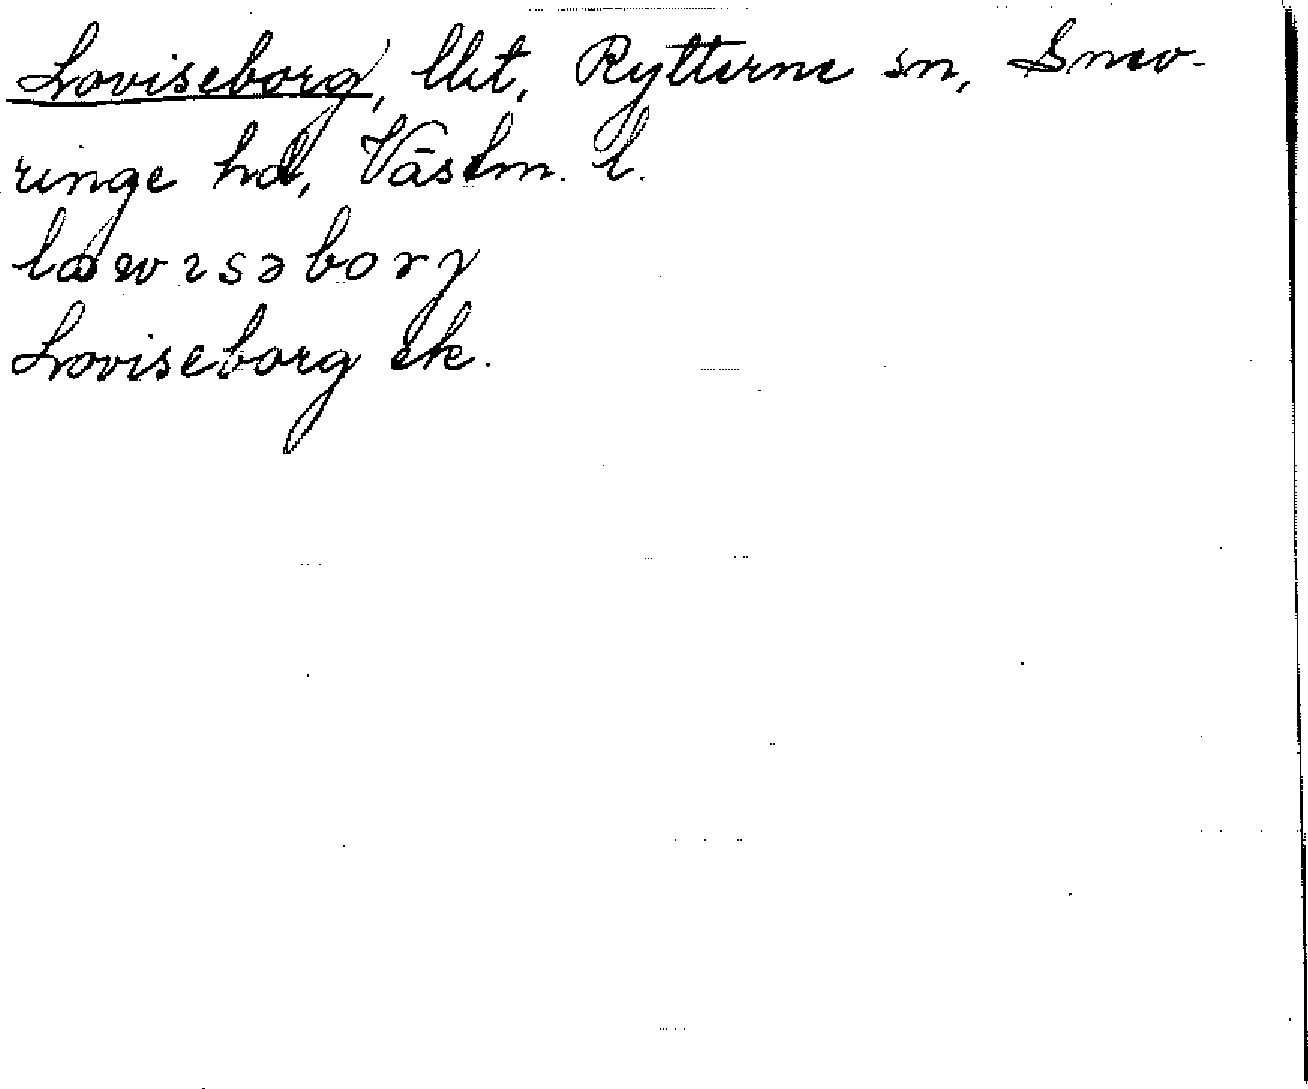 Loviseborg, lht, Rytterne sn, Snev-
ringe hd, Västm. l.
Loviseborg ek.